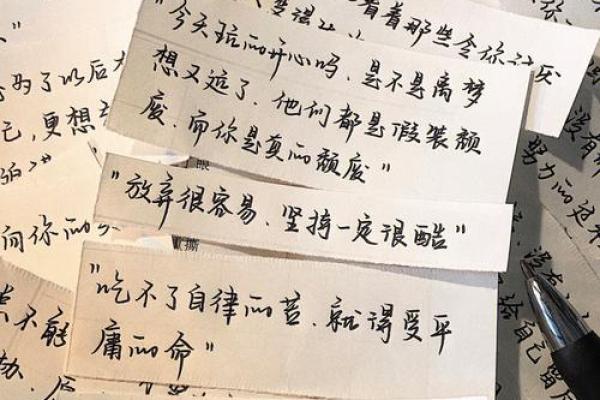 着那些令你讨厌
"今天玩的开心吗,是不是离梦
想又远了,他们都是假装颓
废,而你是真的颓废"
"放弃很容易、坚持一定很酷"
"吃不了自律的苦、就得受平
庸的命"
为了以后
己,更想
向你的
没有
努力的过
给自己留